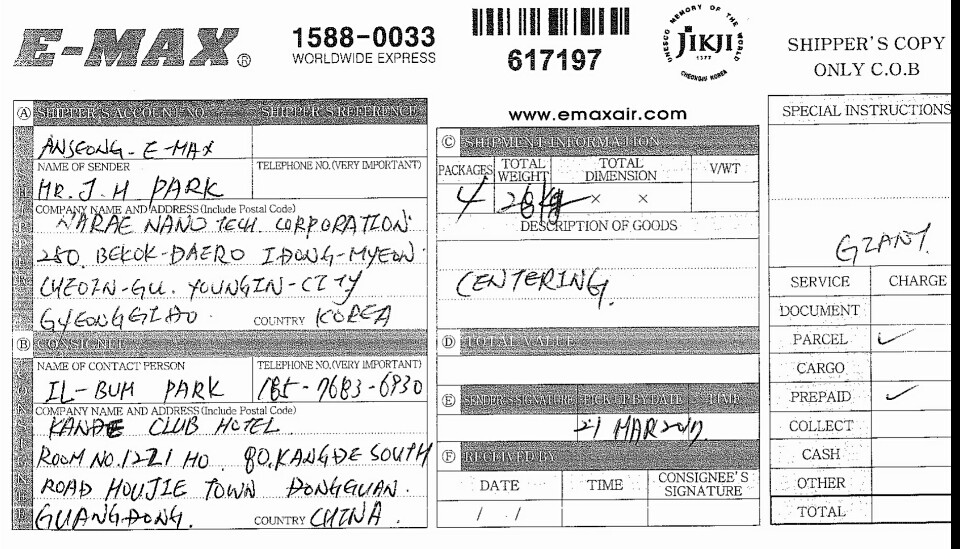 E-MAX®
1588-0033
WORLDWIDE EXPRESS
617197
UNESCO MEMORY OF THE WORLD
JIKJI
1377
CHEONGJU KOREA
SHIPPER'S COPY
ONLY C.O.B
www.emaxair.com
Ⓐ SHIPPER'S ACCOUNT NO. SHIPPER'S REFERENCE
ANSEONG-E-MAX
NAME OF SENDER TELEPHONE NO. (VERY IMPORTANT)
MR. J. H PARK
COMPANY NAME AND ADDRESS (Include Postal Code)
NARAE NANO TECH. CORPORATION
280. BEKOK-DAERO IDONG-MYEON.
CHEOIN-GU. YOUNGIN-CITY
GYEONGGIDO. COUNTRY KOREA
Ⓑ CONSIGNEE
NAME OF CONTACT PERSON TELEPHONE NO. (VERY IMPORTANT)
IL-BUM PARK 185-7683-6930
COMPANY NAME AND ADDRESS (Include Postal Code)
KANDE CLUB HOTEL.
ROOM NO. 1221 HO. 80. KANGDE SOUTH
ROAD HOUJIE TOWN DONGGUAN.
GUANGDONG. COUNTRY CHINA.
Ⓒ SHIPMENT INFORMATION
PACKAGES TOTAL WEIGHT TOTAL DIMENSION V/WT
4 kg × ×
DESCRIPTION OF GOODS
CENTERING.
Ⓓ TOTAL VALUE
Ⓔ SENDER'S SIGNATURE PICK-UP BY DATE TIME
21 MAR 2017.
Ⓕ RECEIVED BY
DATE TIME CONSIGNEE'S SIGNATURE
/ /
SPECIAL INSTRUCTIONS
SERVICE CHARGE
DOCUMENT
PARCEL ✓
CARGO
PREPAID ✓
COLLECT
CASH
OTHER
TOTAL